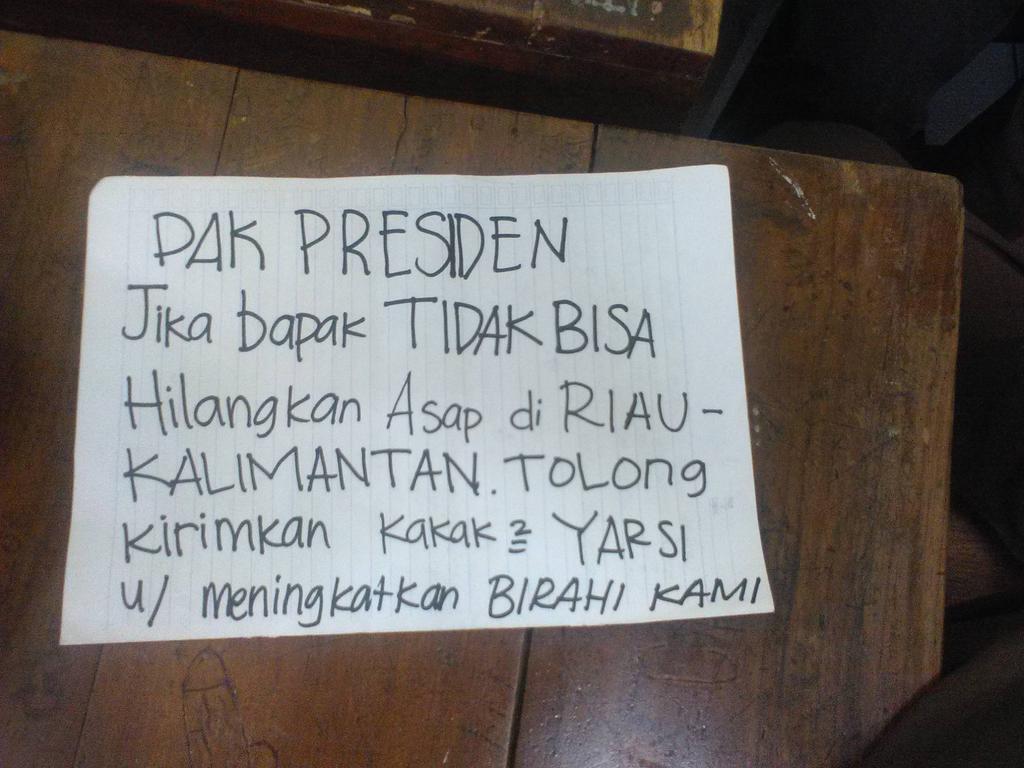 PAK PRESIDEN
Jika bapak TIDAK BISA
Hilangkan Asap di RIAU-
KALIMANTAN. TOLONG
Kirimkan Kakak 2 YARSI
u/ meningkatkan BIRAHI KAMI